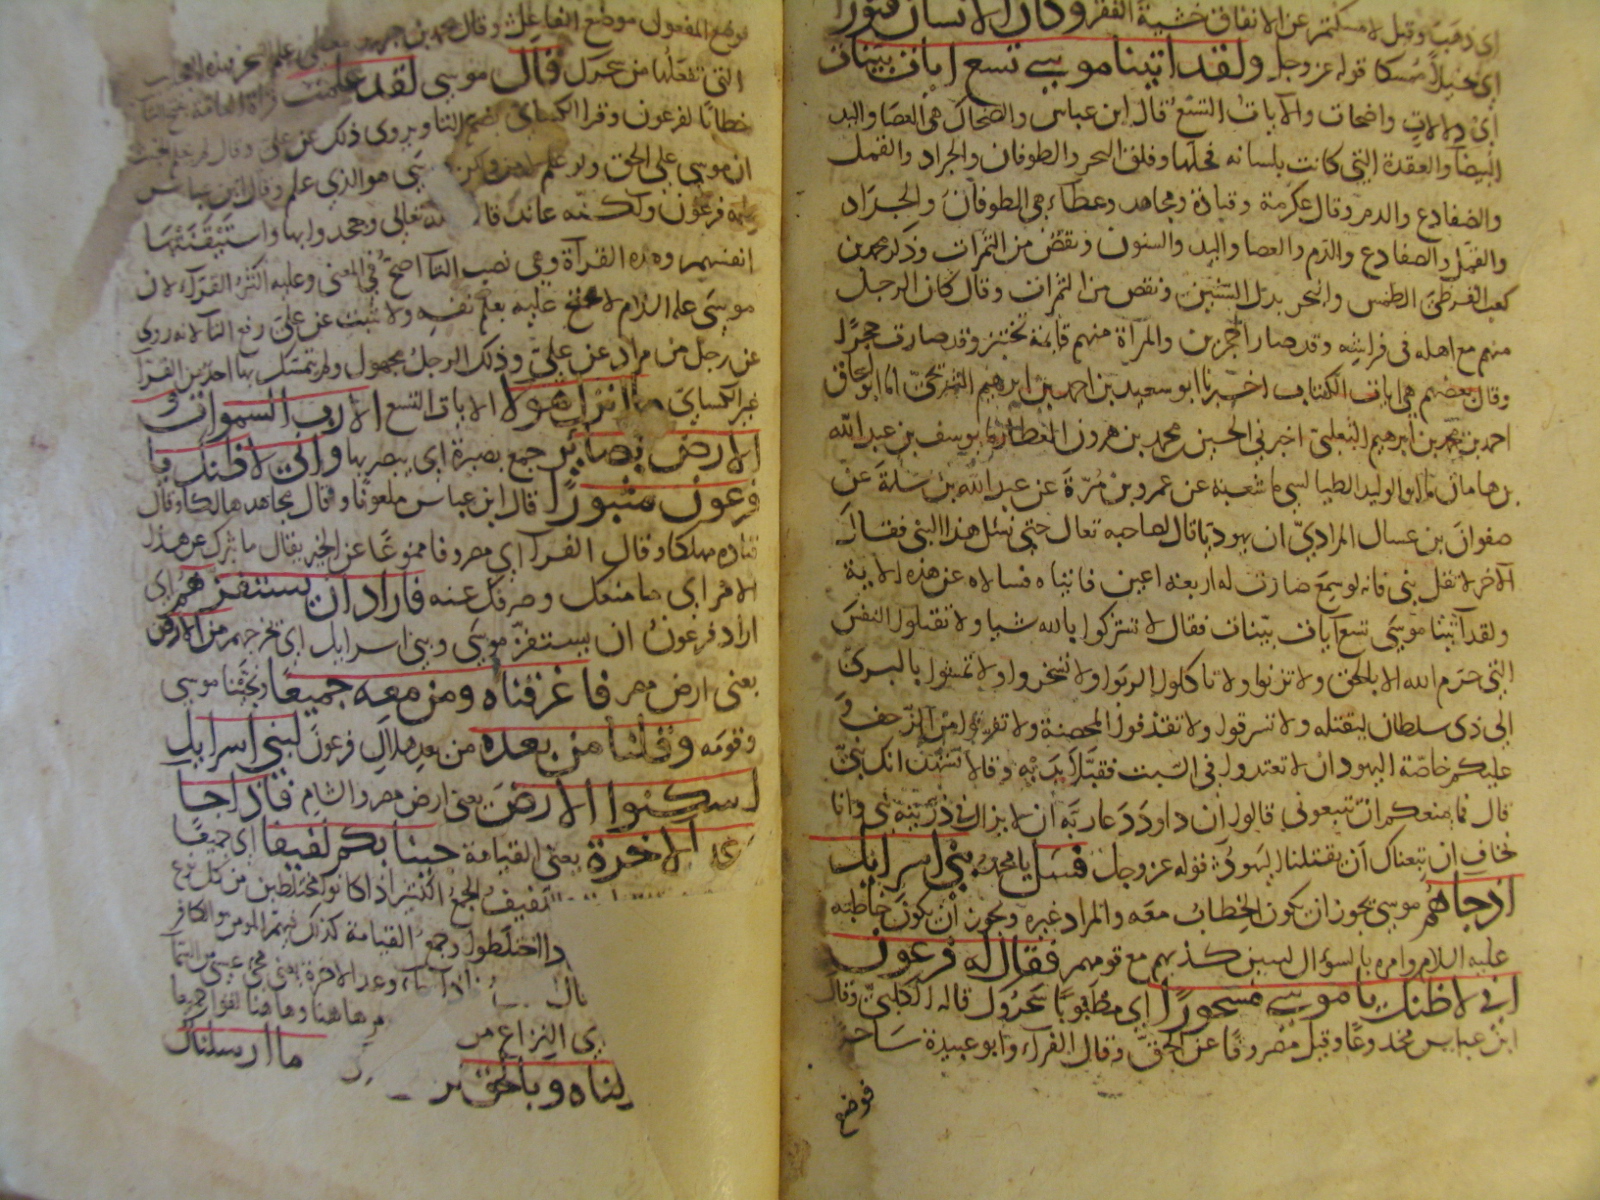 اي ذهب وقيل لامسكتم عن الانفاق خشية الفقر وكان الانسان قتورا
اي بخيلا ممسكا قوله عز وجل ولقد اتينا موسى تسع ايات بينات
اي دلالات واضحات والايات التسع قال ابن عباس والضحاك هي العصا واليد
البيضا والعقدة التي كانت بلسانه فحلها وفلق البحر والطوفان والجراد والقمل
والضفادع والدم وقال عكرمة وقتادة ومجاهد وعطاء هي الطوفان والجراد
والقمل والضفادع والدم والعصا واليد والسنون ونقص من الثمرات وذكر محمد بن
كعب القرظي الطمس والبحر بدل السنين ونقص من الثمرات وقال كان الرجل
منهم مع اهله في فراشه وقد صارا حجرين والمراة منهم قايمة تختبز وقد صارت حجرا
وقال بعضهم هي ايات الكتاب اخبرنا ابو سعيد بن احمد بن ابرهيم الشريحي انا ابو اسحاق
احمد بن محمد بن ابرهيم الثعلبي اخبرني الحسين بن محمد بن هرون العطار يوسف بن عبد الله
بن ماهان ابو الوليد الطيالسي شعبة عن عمرو بن مرة عن عبد الله بن سلمة عن
صفوان بن عسال المرادي ان يهوديا قال لصاحبه تعال حتى نسئل هذا النبي فقال
الاخر لا تقل نبي فانه لو سمع صارت له اربعة اعين فاتياه فسالاه عن هذه الاية
ولقد آتينا موسى تسع آيات بينات فقال لا تشركوا بالله شيا ولا تقتلوا النفس
التي حرم الله الا بالحق ولا تزنوا ولا تاكلوا الربوا ولا تسحروا ولا تمشوا بالبرئ
الى ذي سلطان ليقتله ولا تسرقوا ولا تقذفوا المحصنة ولا تفروا من الزحف و
عليكم خاصة اليهود ان لا تعتدوا في السبت فقبلا يديه وقالا نشهد انك نبي
قال فما يمنعكم ان تتبعوني قالوا ان داود دعا ربه ان لا يزال في ذريته نبي وانا
نخاف ان تبعناك ان يقتلنا اليهود قوله عز وجل فسئل يا محمد بني اسرايل
اذ جاهم موسى يجوز ان يكون الخطاب معه والمراد غيره ويجوز ان يكون خاطبه
عليه السلام وامره بالسؤال ليتبين كذبهم مع قومهم فقال له فرعون
اني لاظنك يا موسى مسحورا اي مطبوبا سحروك قاله الكلبي وقال
ابن عباس مخدوعا وقيل مصروفا عن الحق وقال الفراء وابو عبيدة ساحر
فوضع
فوضع المفعول موضع الفاعل وقال محمد بن جرير معطى علم السحر فهذه العجايب
التي تفعلها من سحرك قال موسى لقد علمت قراة العامة بفتح التا
خطابا لفرعون وقرا الكسائي بضم التا ويروى ذلك عن علي وقال لم يعلم الخبيث
ان موسى على الحق ولو علم لامن ولكن موسى هو الذي علم وقال ابن عباس
علمه فرعون ولكنه عاند قال الله تعالى وجحدوا بها واستيقنتها
انفسهم وهذه القراة وهي نصب التا اصح في المعنى وعليه اكثر القراء لان
موسى عليه السلام لا يحتج عليه بعلم نفسه ولا يثبت عن علي رفع التا لانه روي
عن رجل من مراد عن علي وذلك الرجل مجهول ولم يتمسك بها احد من القرا
غير الكسائي ما انزل هولا الايات التسع الا رب السموات و
الارض بصائر جمع بصيرة اي يبصر بها واني لاظنك يا
فرعون مثبورا قال ابن عباس ملعونا وقال مجاهد هالكا وقال
قتاده مهلكا وقال الفراء اي مصروفا ممنوعا عن الخير يقال ما ثبرك عن هذا
الامر اي ما منعك وصرفك عنه فاراد ان يستفزهم اي
اراد فرعون ان يستفز موسى وبني اسرايل اي يخرجهم من الارض
يعني ارض مصر فاغرقناه ومن معه جميعا ونجينا موسى
وقومه وقلنا من بعده من بعد هلاك فرعون لبني اسرايل
اسكنوا الارض يعني ارض مصر والشام فاذا جا
الاخرة يعني القيامة جينا بكم لفيفا اي جميعا
اللفيف الجمع الكثير اذا كانوا مختلطين من كل نوع
اذا اختلطوا وجمع القيامة كذلك فيهم المومن والكافر
وعد الاخرة يعني مجي عيسى من السما
من هاهنا وهاهنا لفوا جميعا
ي النزاع من
ما ارسلناك
لناه وبالحق نر